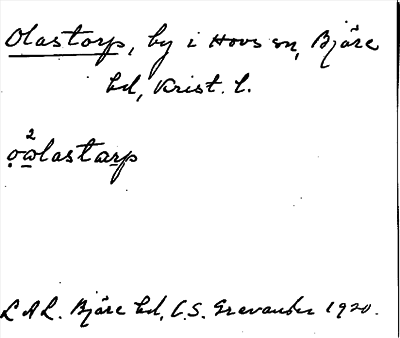 Olastorp, by i Hovs sn, Bjäre
hd, Krist. l.
2
o̤a̲lastarp
L A L. Bjäre hd, C.S. Grevander 1920.